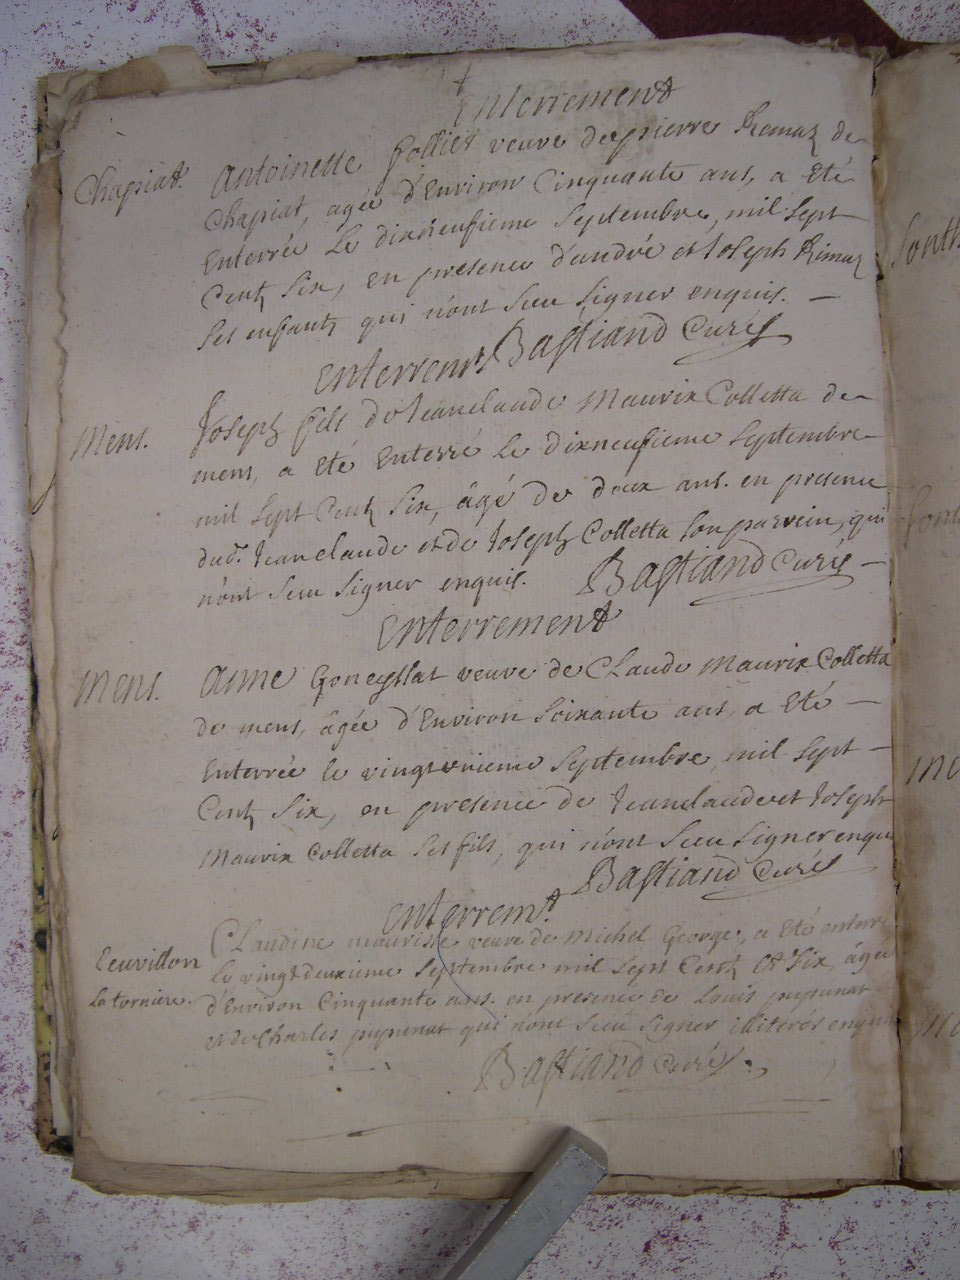 Enterrement
Chapiat. Antoinette folliet veuve de pierre Remaz de
Chapiat, agée d'Environ Cinquante ans, a Eté
Enterrée Le dixneufieme Septembre, mil Sept
Centz Six, en presence d'andré et Joseph Rimaz
Ses enfantz qui n'ont Sceu Signer enquis. —
Bastiand Curé
Enterremt
Mens. Joseph fils de Jeanclaude Maurix Colletta de
mens, a Eté Enterré Le dixneufieme Septembre
mil Sept Centz Six, âgé de deux ans. en presence
dud. Jeanclaude et de Joseph Colletta Son parrein, qui
n'ont Sceu Signer enquis. Bastiand Curé —
Enterrement
Mens. Anne Goneyssat veuve de CLaude Maurix Colletta
de mens, âgée d'Environ Soixante ans, a Eté —
Enterrée le vingtunieme Septembre mil Sept —
Centz Six, en presence de Jeanclaude et Joseph
Maurix Colletta Ses fils, qui n'ont Sceu Signer enqu
Bastiand Curé
Enterremt
CLaudine mauriste veuve de Michel George, a Eté enterr
Le vingtdeuxieme Septembre mil Sept Centz Et Six, âgée
La torniere. d'Environ Cinquante ans. en presence de Louis pupunat
et de Charles pupunat qui n'ont Sceu Signer illiterés enquis
Bastiand Curé